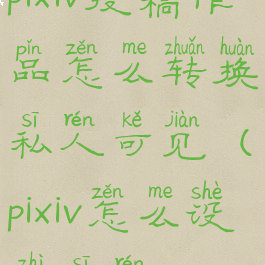 pixiv投稿作
pǐn zěn me zhuǎn huàn
品怎么转换
sī rén kě jiàn
私人可见（
zěn me shè
pixiv怎么设
zhì sī rén